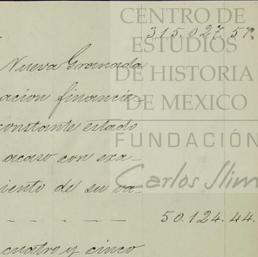 CENTRO DE
315.027.57.
ESTUDIOS
Nueva Granada
DE HISTORIA
acion financie-
DE MEXICO
constante estado
FUNDACIÓN
acaso con exa-
Carlos Slim
iento de su va-
50.124.44.
cuatro y cinco